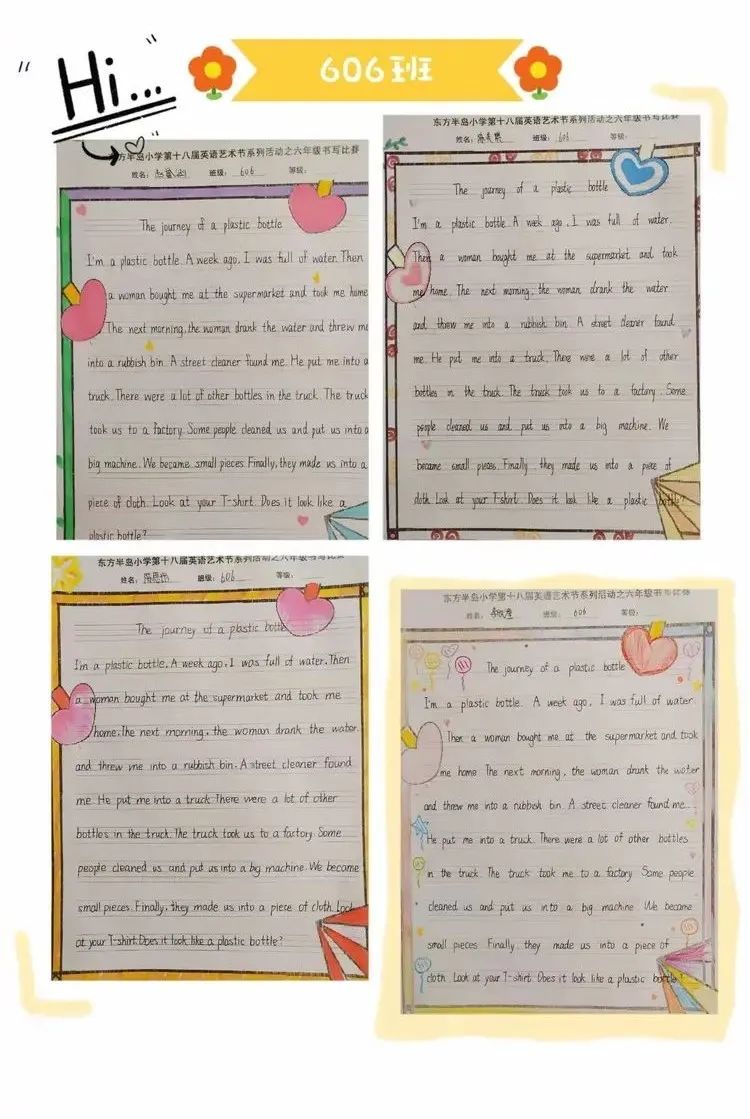 Hi...
606班
东方半岛小学第十八届英语艺术节系列活动之六年级书写比赛
姓名： 班级： 606 等级：
The journey of a plastic bottle
I'm a plastic bottle. A week ago, I was full of water. Then
a woman bought me at the supermarket and took me home
The next morning, the woman drank the water and threw me
into a rubbish bin. A street cleaner found me. He put me into a
truck. There were a lot of other bottles in the truck. The truck
took us to a factory. Some people cleaned us and put us into a
big machine. We became small pieces. Finally, they made us into a
piece of cloth. Look at your T-shirt. Does it look like a
plastic bottle?
东方半岛小学第十八届英语艺术节系列活动之六年级书写比赛
姓名： 班级： 606 等级：
The journey of a plastic bottle
I'm a plastic bottle. A week ago, I was full of water.
Then a woman bought me at the supermarket and took
me home. The next morning, the woman drank the water
and threw me into a rubbish bin. A street cleaner found
me. He put me into a truck. There were a lot of other
bottles in the truck. The truck took us to a factory. Some
people cleaned us and put us into a big machine. We
became small pieces. Finally they made us into a piece of
cloth. Look at your T-shirt. Does it look like a plastic bottle?
东方半岛小学第十八届英语艺术节系列活动之六年级书写比赛
姓名： 班级： 606 等级：
The journey of a plastic bottle
I'm a plastic bottle. A week ago, I was full of water. Then
a woman bought me at the supermarket and took me
home. The next morning, the woman drank the water
and threw me into a rubbish bin. A street cleaner found
me. He put me into a truck. There were a lot of other
bottles in the truck. The truck took us to a factory. Some
people cleaned us and put us into a big machine. We became
small pieces. Finally, they made us into a piece of cloth. Look
at your T-shirt. Does it look like a plastic bottle?
东方半岛小学第十八届英语艺术节系列活动之六年级书写比赛
姓名： 班级： 606 等级：
The journey of a plastic bottle
I'm a plastic bottle. A week ago, I was full of water
Then a woman bought me at the supermarket and took
me home The next morning, the woman drank the water
and threw me into a rubbish bin. A street cleaner found me.
He put me into a truck. There were a lot of other bottles
in the truck. The truck took me to a factory Some people
cleaned us and put us into a big machine We became
small pieces Finally, they made us into a piece of
cloth. Look at your T-shirt. Does it look like a plastic bottle?